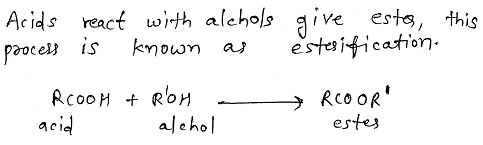 Acids react with alchols give ester, this
process is known as esterification.
RCOOH + R'OH ⟶ RCOOR'
acid alchol ester